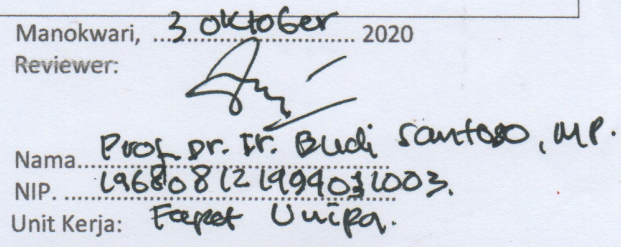 Manokwari, 3 Oktober 2020
Reviewer:
Nama Prof. Dr. Ir. Budi Santoso, MP.
NIP. 196808121994031003.
Unit Kerja: Fapet Unipa.